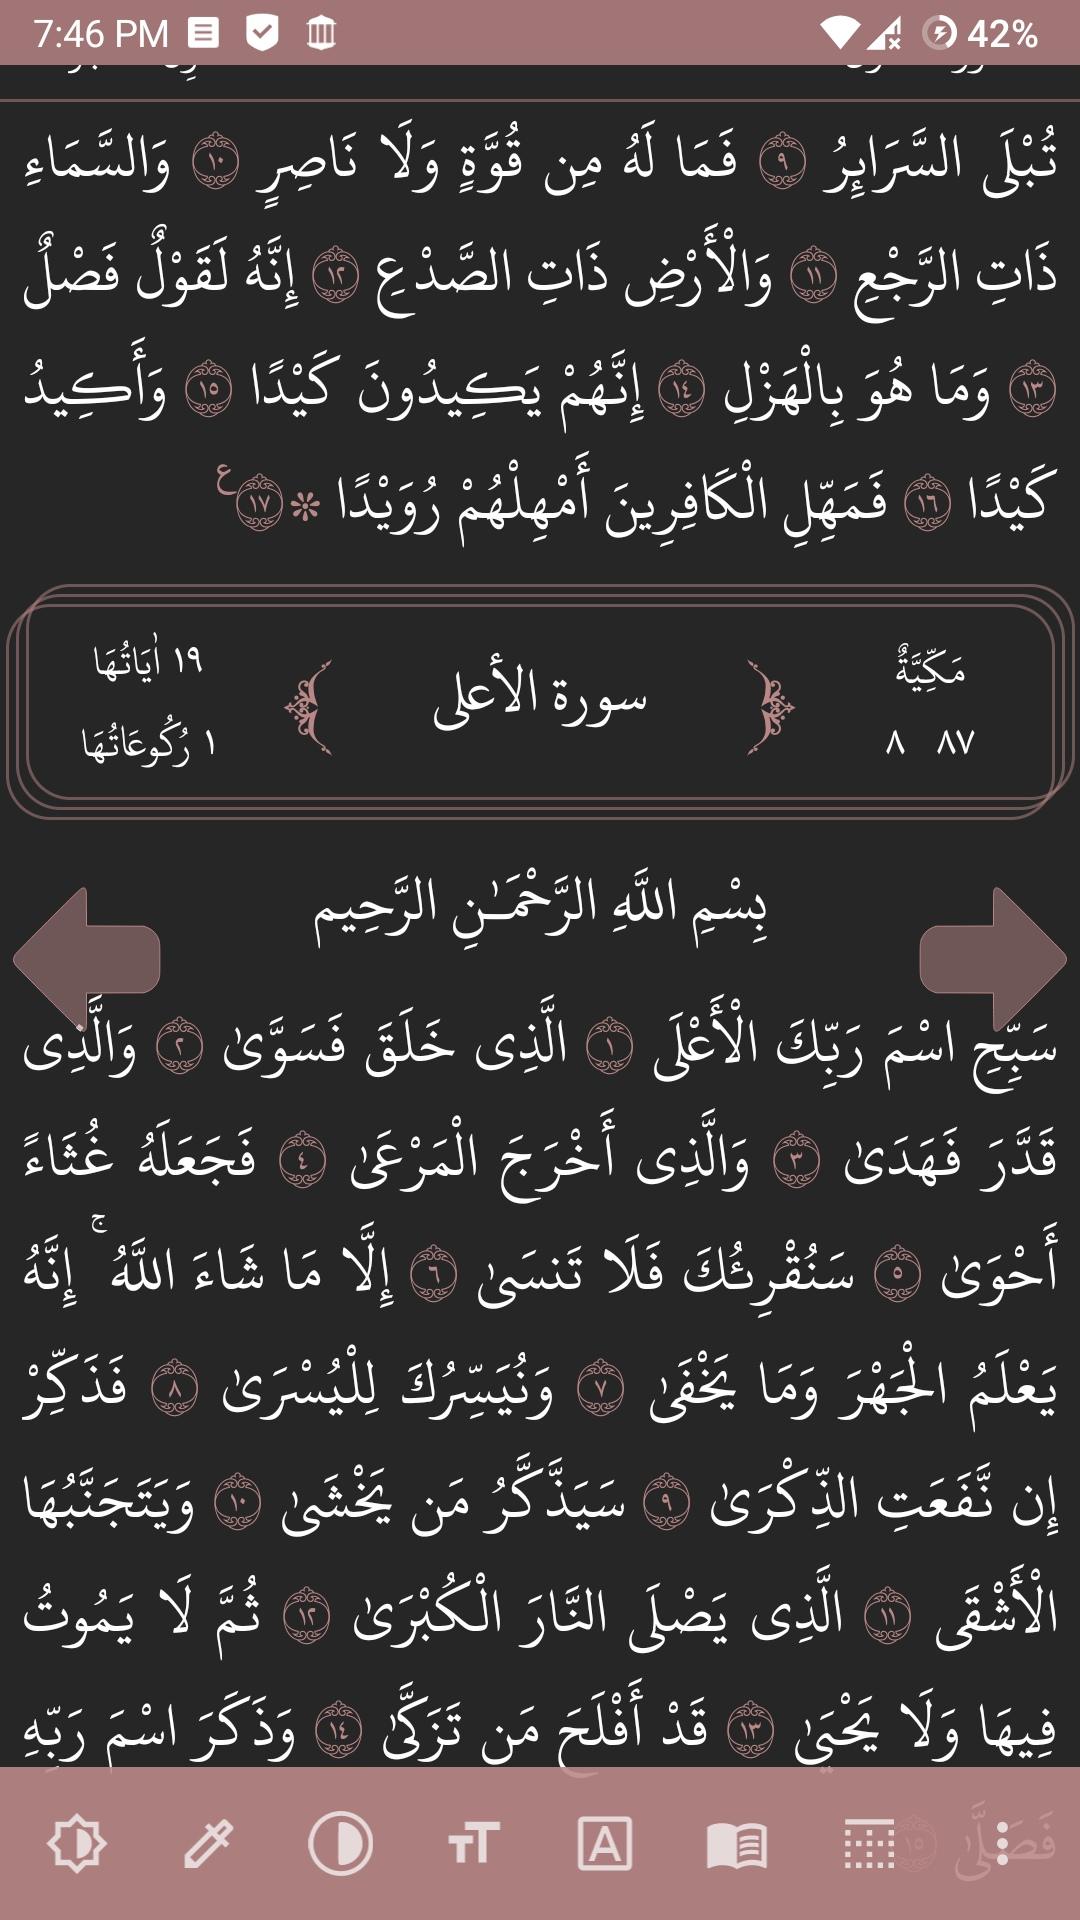 7:46 PM 42%
تُبْلَى السَّرَائِرُ ٩ فَمَا لَهُ مِن قُوَّةٍ وَلَا نَاصِرٍ ١٠ وَالسَّمَاءِ
ذَاتِ الرَّجْعِ ١١ وَالْأَرْضِ ذَاتِ الصَّدْعِ ١٢ إِنَّهُ لَقَوْلٌ فَصْلٌ
١٣ وَمَا هُوَ بِالْهَزْلِ ١٤ إِنَّهُمْ يَكِيدُونَ كَيْدًا ١٥ وَأَكِيدُ
كَيْدًا ١٦ فَمَهِّلِ الْكَافِرِينَ أَمْهِلْهُمْ رُوَيْدًا ❊ ١٧ ع
مَكِّيَّةٌ سورة الأعلى ١٩ اٰيَاتُهَا
٨٧ ٨ ١ رُكُوعَاتُهَا
بِسْمِ اللَّهِ الرَّحْمَـٰنِ الرَّحِيم
سَبِّحِ اسْمَ رَبِّكَ الْأَعْلَى ١ الَّذِى خَلَقَ فَسَوَّىٰ ٢ وَالَّذِى
قَدَّرَ فَهَدَىٰ ٣ وَالَّذِى أَخْرَجَ الْمَرْعَىٰ ٤ فَجَعَلَهُ غُثَاءً
أَحْوَىٰ ٥ سَنُقْرِئُكَ فَلَا تَنسَىٰ ٦ إِلَّا مَا شَاءَ اللَّهُ ۚ إِنَّهُ
يَعْلَمُ الْجَهْرَ وَمَا يَخْفَىٰ ٧ وَنُيَسِّرُكَ لِلْيُسْرَىٰ ٨ فَذَكِّرْ
إِن نَّفَعَتِ الذِّكْرَىٰ ٩ سَيَذَّكَّرُ مَن يَخْشَىٰ ١٠ وَيَتَجَنَّبُهَا
الْأَشْقَى ١١ الَّذِى يَصْلَى النَّارَ الْكُبْرَىٰ ١٢ ثُمَّ لَا يَمُوتُ
فِيهَا وَلَا يَحْيَىٰ ١٣ قَدْ أَفْلَحَ مَن تَزَكَّىٰ ١٤ وَذَكَرَ اسْمَ رَبِّهِ
فَصَلَّىٰ ١٥